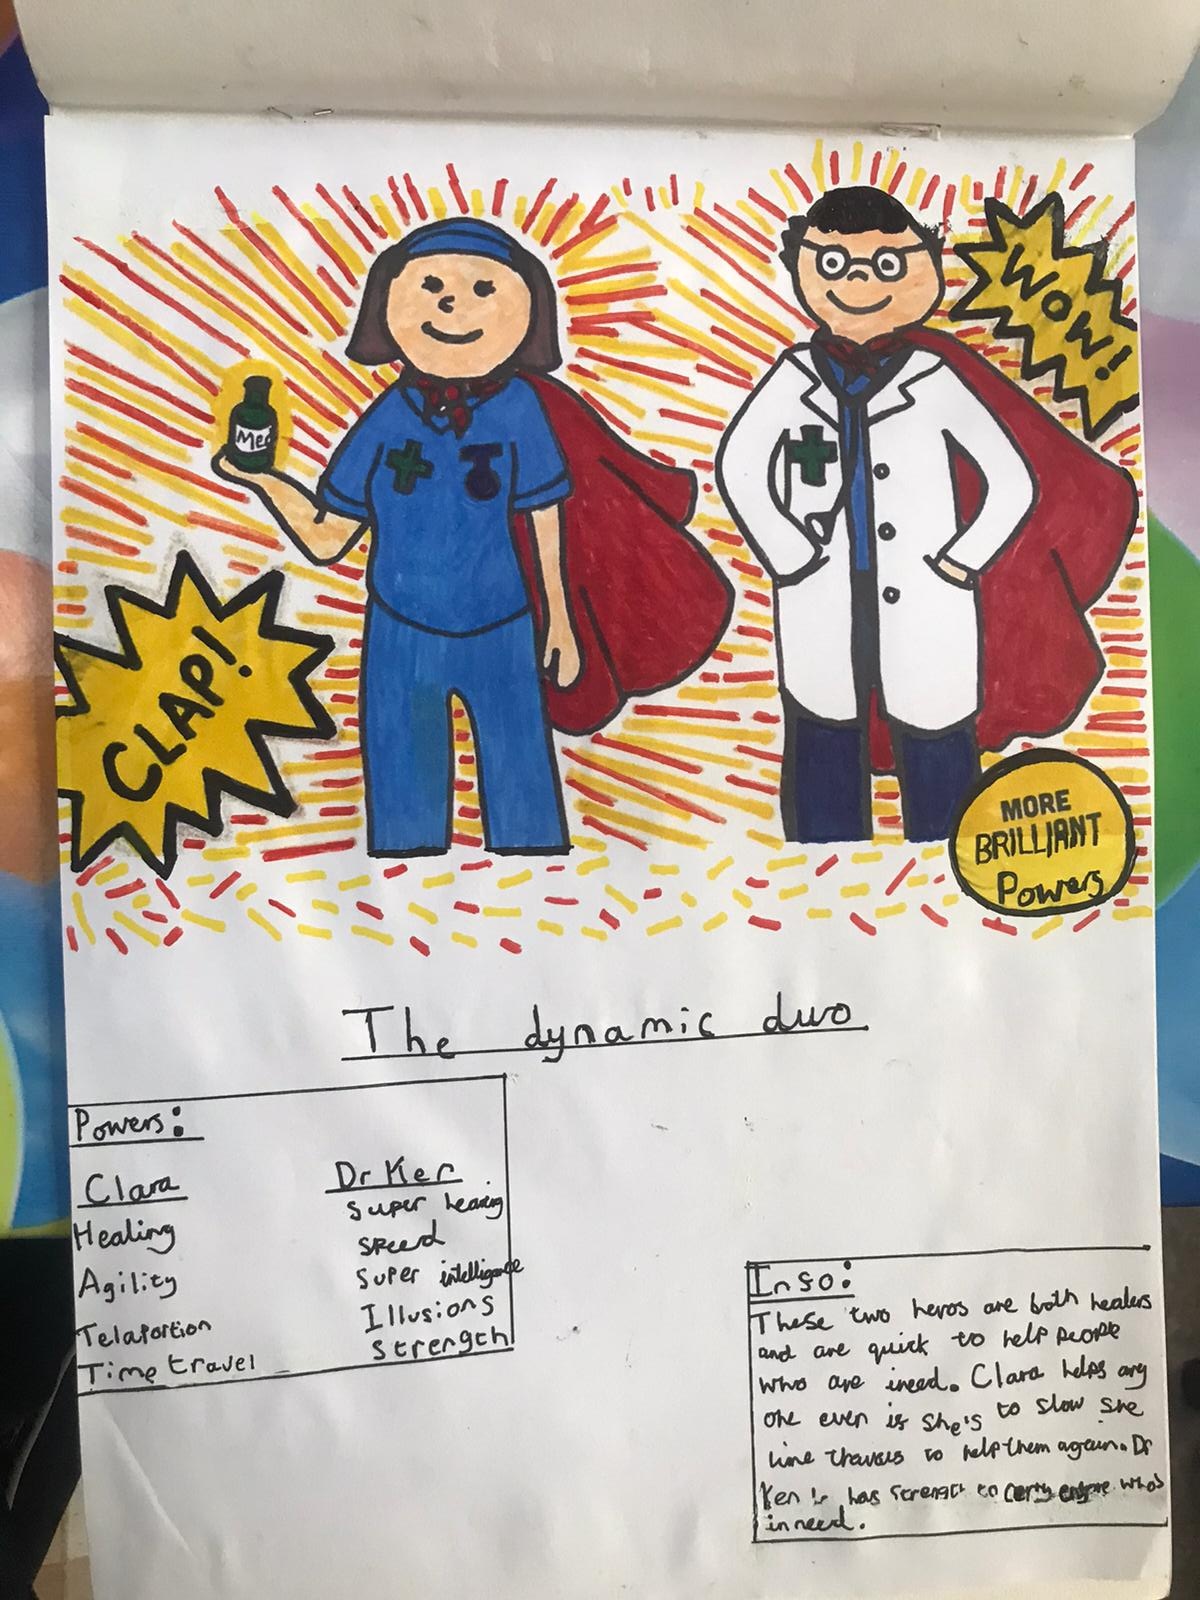 WOW!
Med
CLAP!
MORE
BRILLIANT
Powers
The dynamic duo
Powers:
Clara
Healing
Agility
Telaportion
Time travel
Dr Ken
super hearing
speed
super intelligence
Illusions
strength
Info:
These two heros are both healers
and are quick to help people
who are ineed. Clara helps any
one even if she's to slow she
time travels to help them again. Dr
Ken has strength to carry who's
in need.